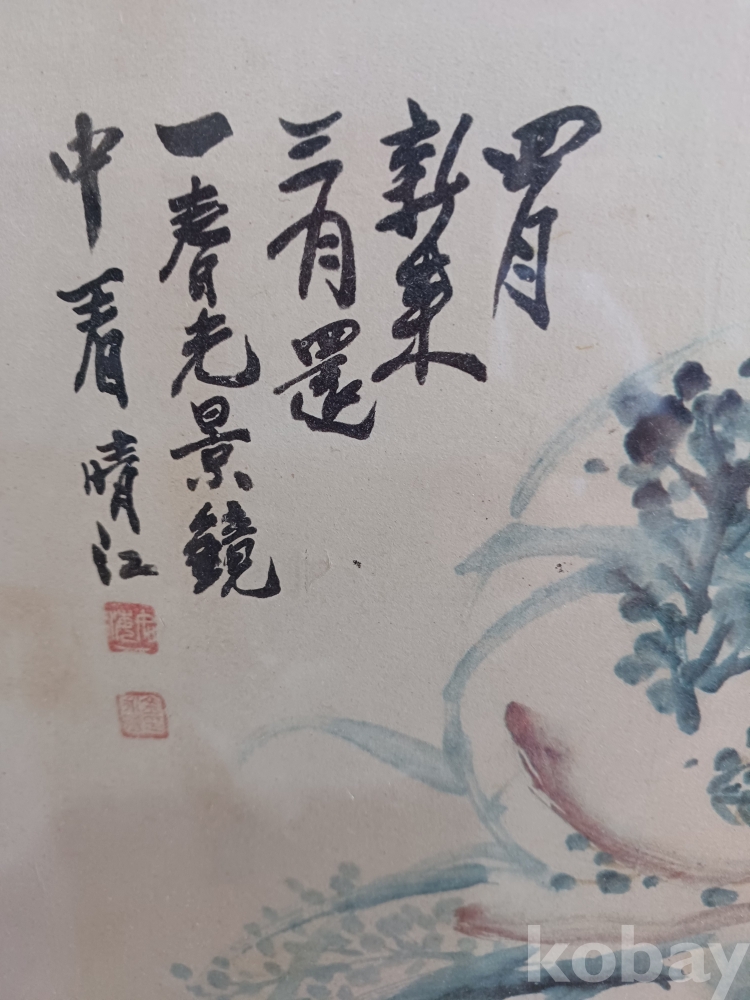 四月
新来
三月還
一春光景鏡
中看 晴江
kobay